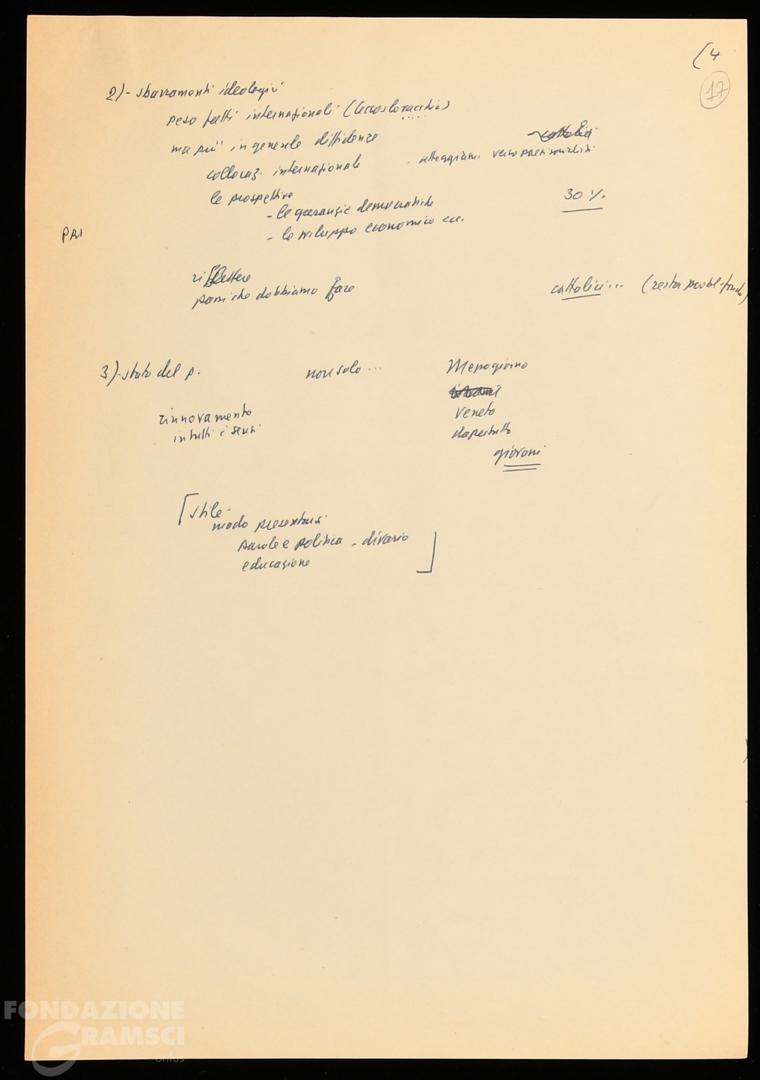 (4
17
2) - sbarramenti ideologici
peso fatti internazionali (Cecoslovacchia)
ma più in generale diffidenze
collocaz. internazionale . atteggiam. verso paesi socialisti
le prospettive 30%
- le garanzie democratiche
- lo sviluppo economico ecc.
PRI
riflettere
passi che dobbiamo fare cattolici... (resta probl. fondo)
3) - stato del p. non solo... Mezzogiorno
rinnovamento veneto
in tutti i sensi dapertutto
giovani
[stile -
modo presentarsi
parole e politica - divario
educazione ]
FONDAZIONE
GRAMSCI
onlus